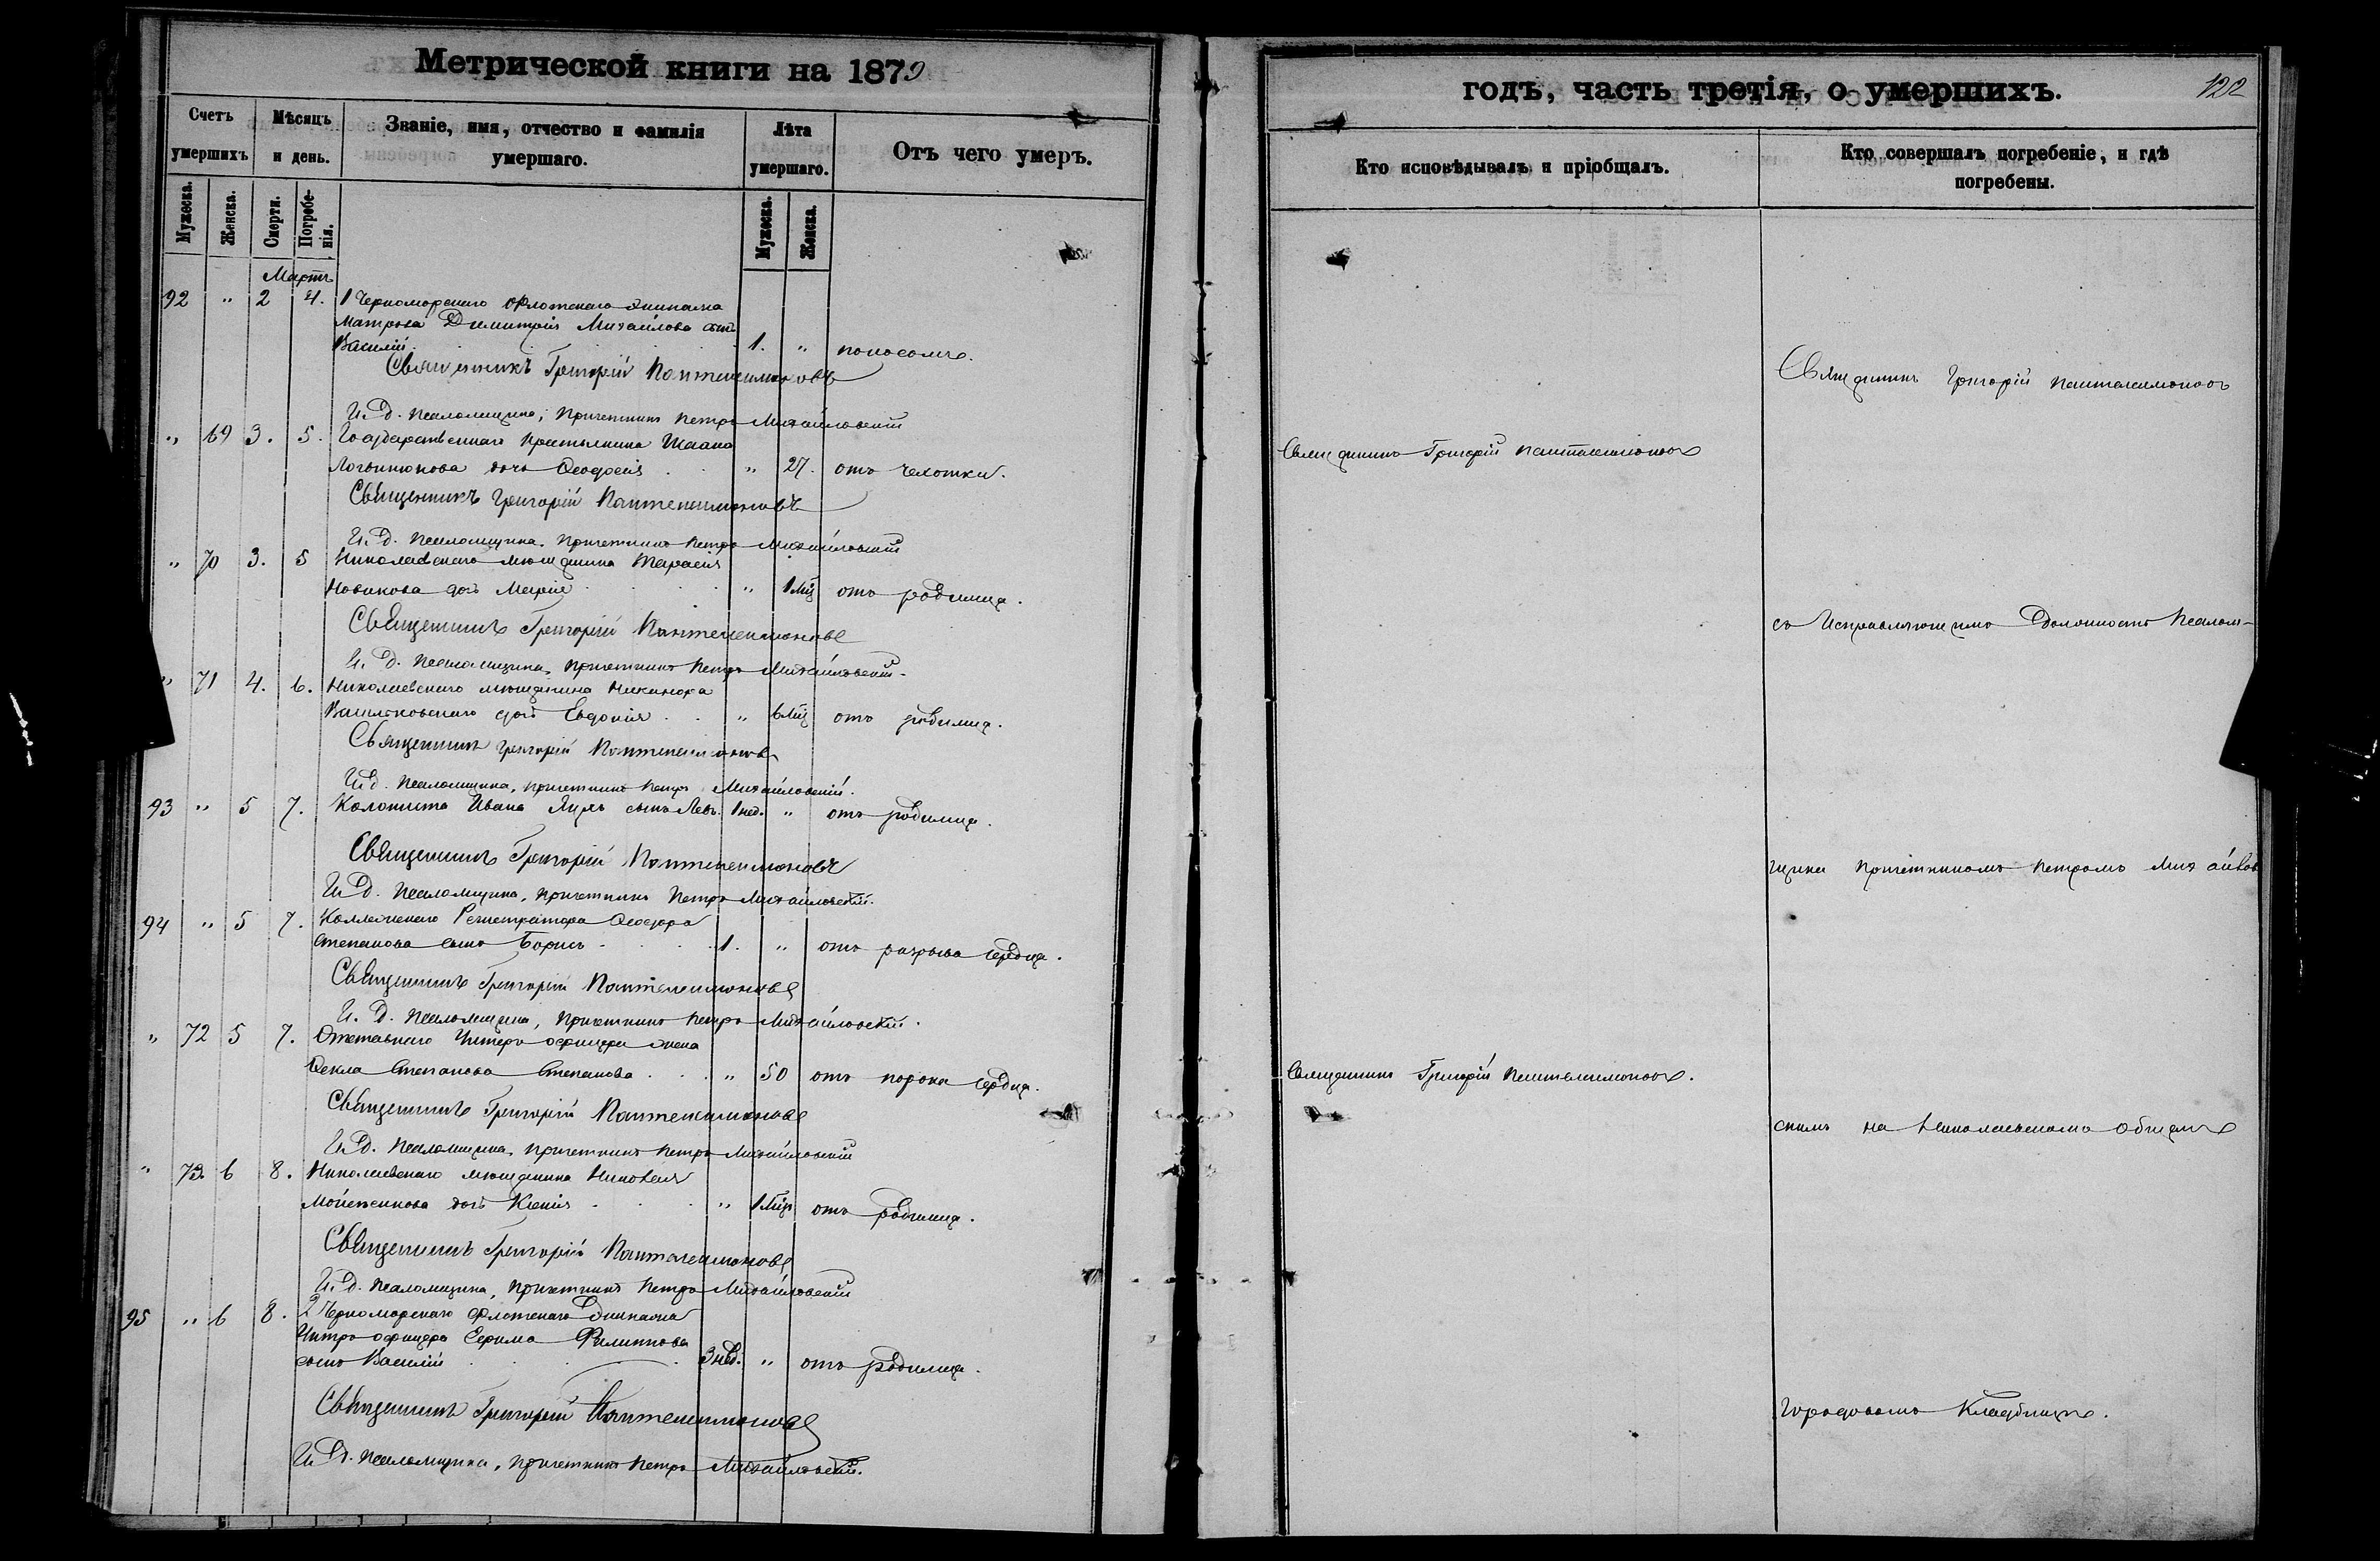 Метрической книги на 1879
годъ, часть третія, о умершихъ.
122
Счетъ умершихъ
Мѣсяцъ и день.
Званіе, имя, отчество и фамилія умершаго.
Лѣта умершаго.
Отъ чего умеръ.
Кто исповѣдывалъ и пріобщалъ.
Кто совершалъ погребеніе, и гдѣ погребены.
Мужеска.
Женска.
Смерти.
Погребенія.
Мужеска.
Женска.
Мартъ
92 " 2 4. 1 Черноморскаго Флотскаго Экипажа
Матроса Димитрія Михайлова сынъ
Василій 1. " поносомъ.
Священникъ Григорій Пантелеимоновъ
Священникъ Григорій Пантелеимоновъ
И. д. Псаломщика, Причетникъ Петръ Михайловскій
" 69 3. 5. Государственнаго Крестьянина
дочь Ѳеодосія " 27. отъ чахотки.
Священникъ Григорій Пантелеимоновъ
Священникъ Григорій Пантелеимоновъ
И. д. Псаломщика, Причетникъ Петръ Михайловскій
" 70 3. 5 Николаевскаго мѣщанина Тарасія
Новикова дочь Марія " 1 мѣц отъ родимца.
Священникъ Григорій Пантелеимоновъ
съ Исправляющимъ Должность Псалом-
И. д. Псаломщика, Причетникъ Петръ Михайловскій.
" 71 4. 6. Николаевскаго мѣщанина Никанора
Васильковскаго дочь Евдокія " 6 мѣц отъ родимца.
Священникъ Григорій Пантелеимоновъ
И. д. Псаломщика, Причетникъ Петръ Михайловскій.
93 " 5 7. Колониста Ивана сынъ Левъ. 1 нед. " отъ родимца.
Священникъ Григорій Пантелеимоновъ
щика Причетникомъ Петромъ Михайлов
И. д. Псаломщика, Причетникъ Петръ Михайловскій.
94 " 5 7. Коллежскаго Регистратора Ѳеодора
Степанова сынъ Борисъ 1. " отъ разрыва сердца.
Священникъ Григорій Пантелеимоновъ
И. д. Псаломщика, Причетникъ Петръ Михайловскій.
" 72 5 7. Отставнаго Унтеръ офицера жена
Ѳекла Степанова Степанова " 50 отъ порока сердца.
Священникъ Григорій Пантелеимоновъ.
Священникъ Григорій Пантелеимоновъ
скимъ на Николаевскомъ общемъ
И. д. Псаломщика, Причетникъ Петръ Михайловскій
" 73 6 8. Николаевскаго мѣщанина
дочь Ксенія " 1 мѣц отъ родимца.
Священникъ Григорій Пантелеимоновъ
И. д. Псаломщика, Причетникъ Петръ Михайловскій
95 " 6 8. 2 Черноморскаго Флотскаго Экипажа
Унтеръ офицера Ефима Филиппова
сынъ Василій 3 нед. " отъ родимца.
Священникъ Григорій Пантелеимоновъ
Городовомъ Кладбищѣ.
И. д. Псаломщика, Причетникъ Петръ Михайловскій.